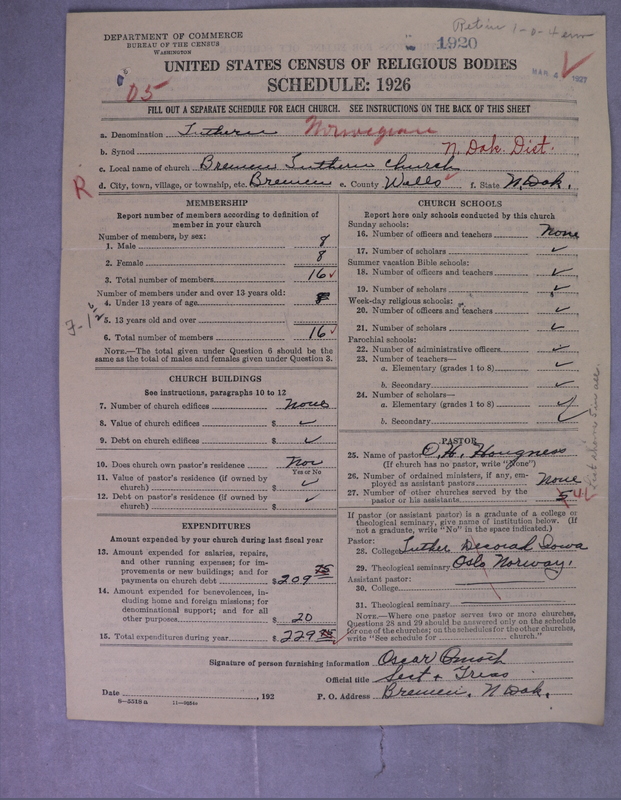 DEPARTMENT OF COMMERCE
BUREAU OF THE CENSUS
WASHINGTON
Retain 1-0-4
1920
MAR 4 1927
05
UNITED STATES CENSUS OF RELIGIOUS BODIES
SCHEDULE: 1926
FILL OUT A SEPARATE SCHEDULE FOR EACH CHURCH. SEE INSTRUCTIONS ON THE BACK OF THIS SHEET
a. Denomination Luthern Norwegian
b. Synod N. Dak. Dist.
c. Local name of church Bremen Luthern Church
R
d. City, town, village, or township, etc. Bremen e. County Wells f. State N. Dak.
MEMBERSHIP
Report number of members according to definition of
member in your church
Number of members, by sex:
1. Male 8
2. Female 8
3. Total number of members 16 ✓
Number of members under and over 13 years old:
4. Under 13 years of age
5. 13 years old and over
6. Total number of members 16 ✓
NOTE.—The total given under Question 6 should be the
same as the total of males and females given under Question 3.
CHURCH BUILDINGS
See instructions, paragraphs 10 to 12
7. Number of church edifices None
8. Value of church edifices $ ✓
9. Debt on church edifices $ ✓
10. Does church own pastor's residence Non
Yes or No
11. Value of pastor's residence (if owned by
church) $ ✓
12. Debt on pastor's residence (if owned by
church) $ ✓
EXPENDITURES
Amount expended by your church during last fiscal year
13. Amount expended for salaries, repairs,
and other running expenses; for im-
provements or new buildings; and for
payments on church debt $209 75
14. Amount expended for benevolences, in-
cluding home and foreign missions; for
denominational support; and for all
other purposes $ 20
15. Total expenditures during year $ 229 75
CHURCH SCHOOLS
Report here only schools conducted by this church
Sunday schools:
16. Number of officers and teachers None
17. Number of scholars ✓
Summer vacation Bible schools:
18. Number of officers and teachers ✓
19. Number of scholars ✓
Week-day religious schools:
20. Number of officers and teachers ✓
21. Number of scholars ✓
Parochial schools:
22. Number of administrative officers ✓
23. Number of teachers—
a. Elementary (grades 1 to 8) ✓
b. Secondary ✓
24. Number of scholars—
a. Elementary (grades 1 to 8) ✓
b. Secondary ✓
PASTOR
25. Name of pastor O. H. Haugness
(If church has no pastor, write "None")
26. Number of ordained ministers, if any, em-
ployed as assistant pastors None
27. Number of other churches served by the
pastor or his assistants 5 4
If pastor (or assistant pastor) is a graduate of a college or
theological seminary, give name of institution below. (If
not a graduate, write "No" in the space indicated.)
Pastor:
28. College Luther Decorah Iowa
29. Theological seminary Oslo Norway.
Assistant pastor:
30. College
31. Theological seminary
NOTE.—Where one pastor serves two or more churches,
Questions 28 and 29 should be answered only on the schedule
for one of the churches; on the schedules for the other churches,
write "See schedule for church."
Signature of person furnishing information Oscar
Official title Sect + Treas
Date , 192 P. O. Address Bremen, N Dak.
8—5518 a 11—9264a